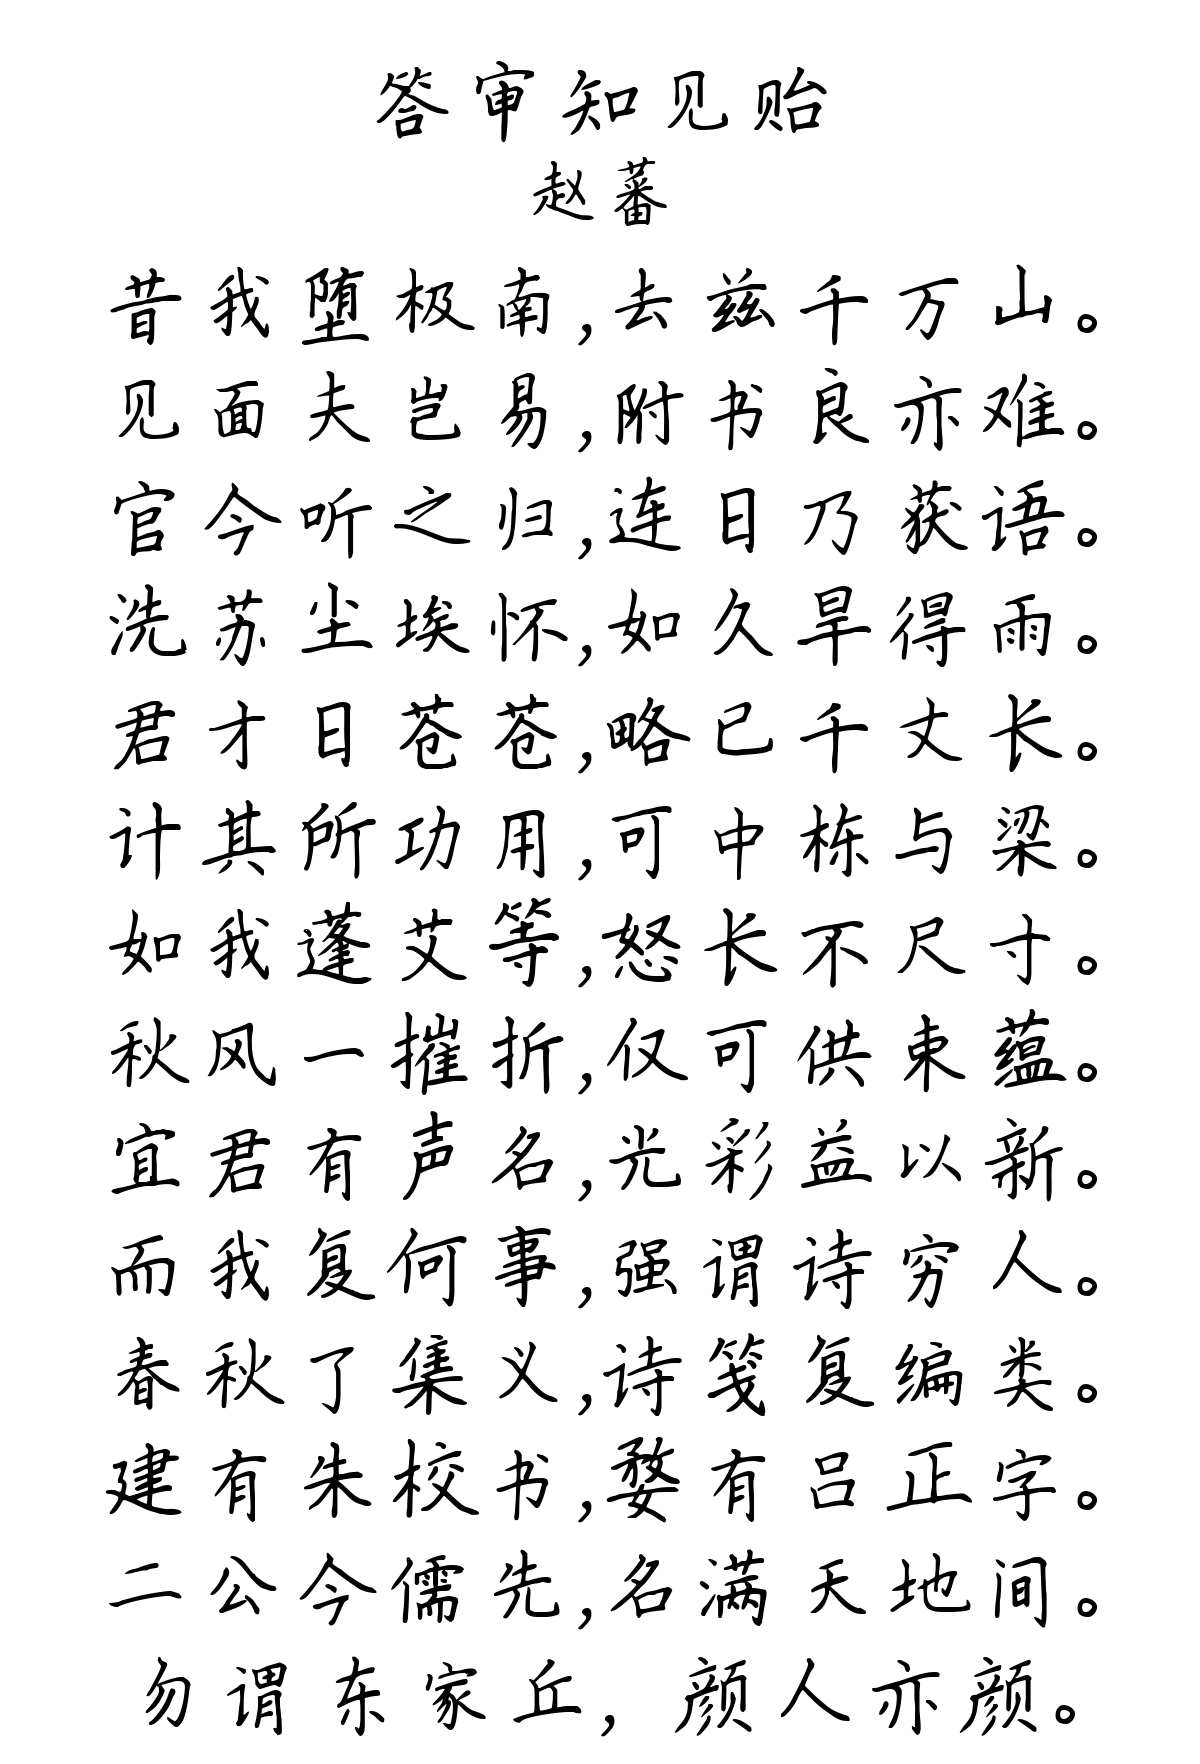 答审知见贻
赵蕃
昔我堕极南,去兹千万山。
见面夫岂易,附书良亦难。
官今听之归,连日乃获语。
洗苏尘埃怀,如久旱得雨。
君才日苍苍,略已千丈长。
计其所功用,可中栋与梁。
如我蓬艾等,怒长不尺寸。
秋风一摧折,仅可供束蕴。
宜君有声名,光彩益以新。
而我复何事,强谓诗穷人。
春秋了集义,诗笺复编类。
建有朱校书,婺有吕正字。
二公今儒先,名满天地间。
勿谓东家丘,颜人亦颜。